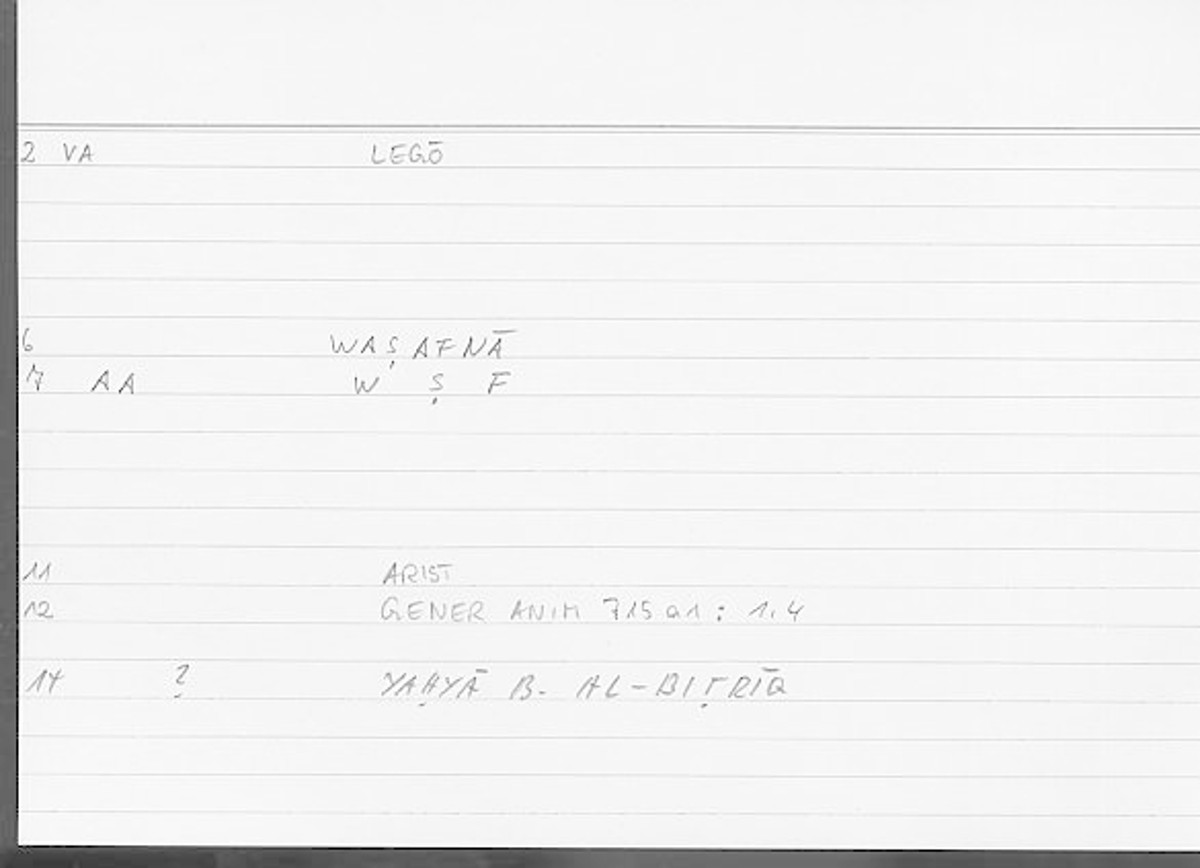 2 VA LEGŌ
6 WAṢAFNĀ
7 AA W Ṣ F
11 ARIST
12 GENER ANIM 715a1 : 1.4
14 ? YAḤYĀ B. AL-BIṬRĪQ